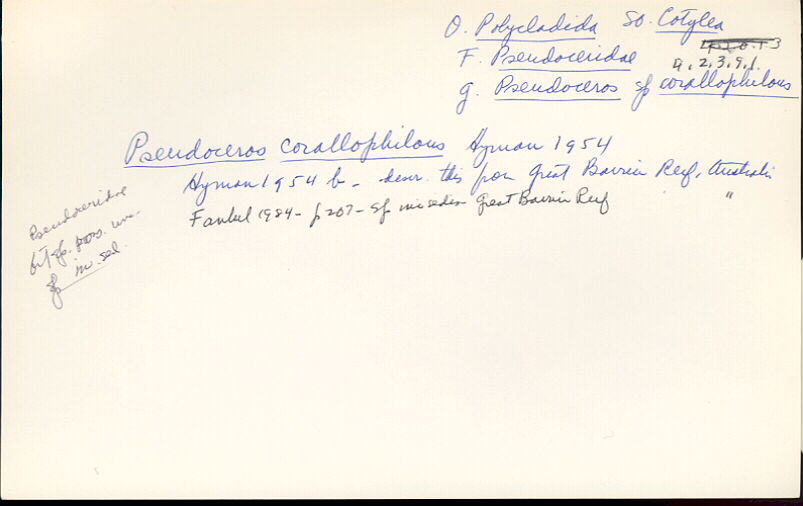 O. Polycladida SO. Cotylea
F. Pseudoceridae
4.2.3.9.1.
g. Pseudoceros sp corallophilous
Pseudoceros corallophilous Hyman 1954
Hyman 1954 b - descr. this from Great Barrier Reef, Australia
Faubel 1984 - p 207 - sp in sedis Great Barrier Reef "
Pseudoceridae
but sp. poss.
sp in. sed.